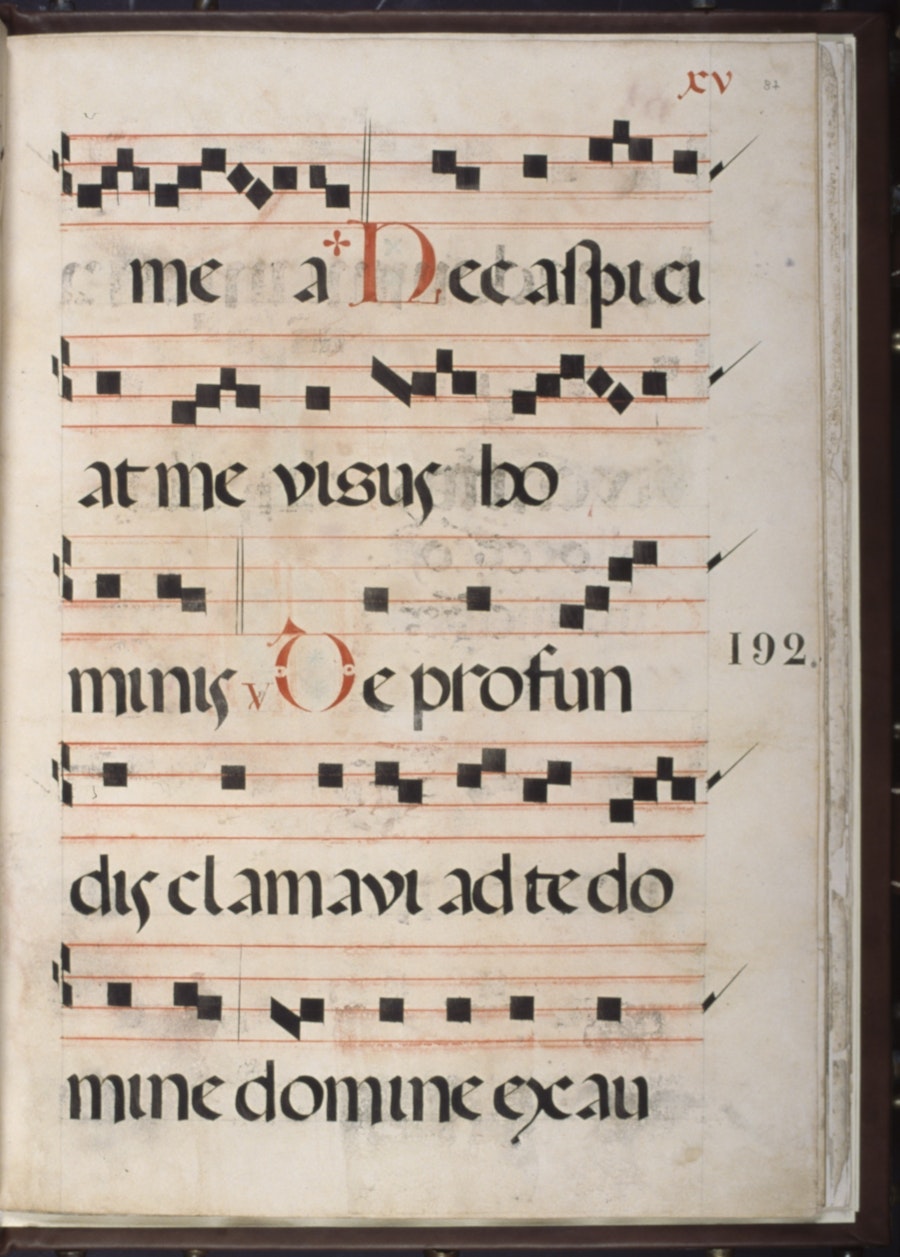 xv 87
me a Nec aspici
at me visus ho
minis v De profun
192.
dis clamavi ad te do
mine domine exau